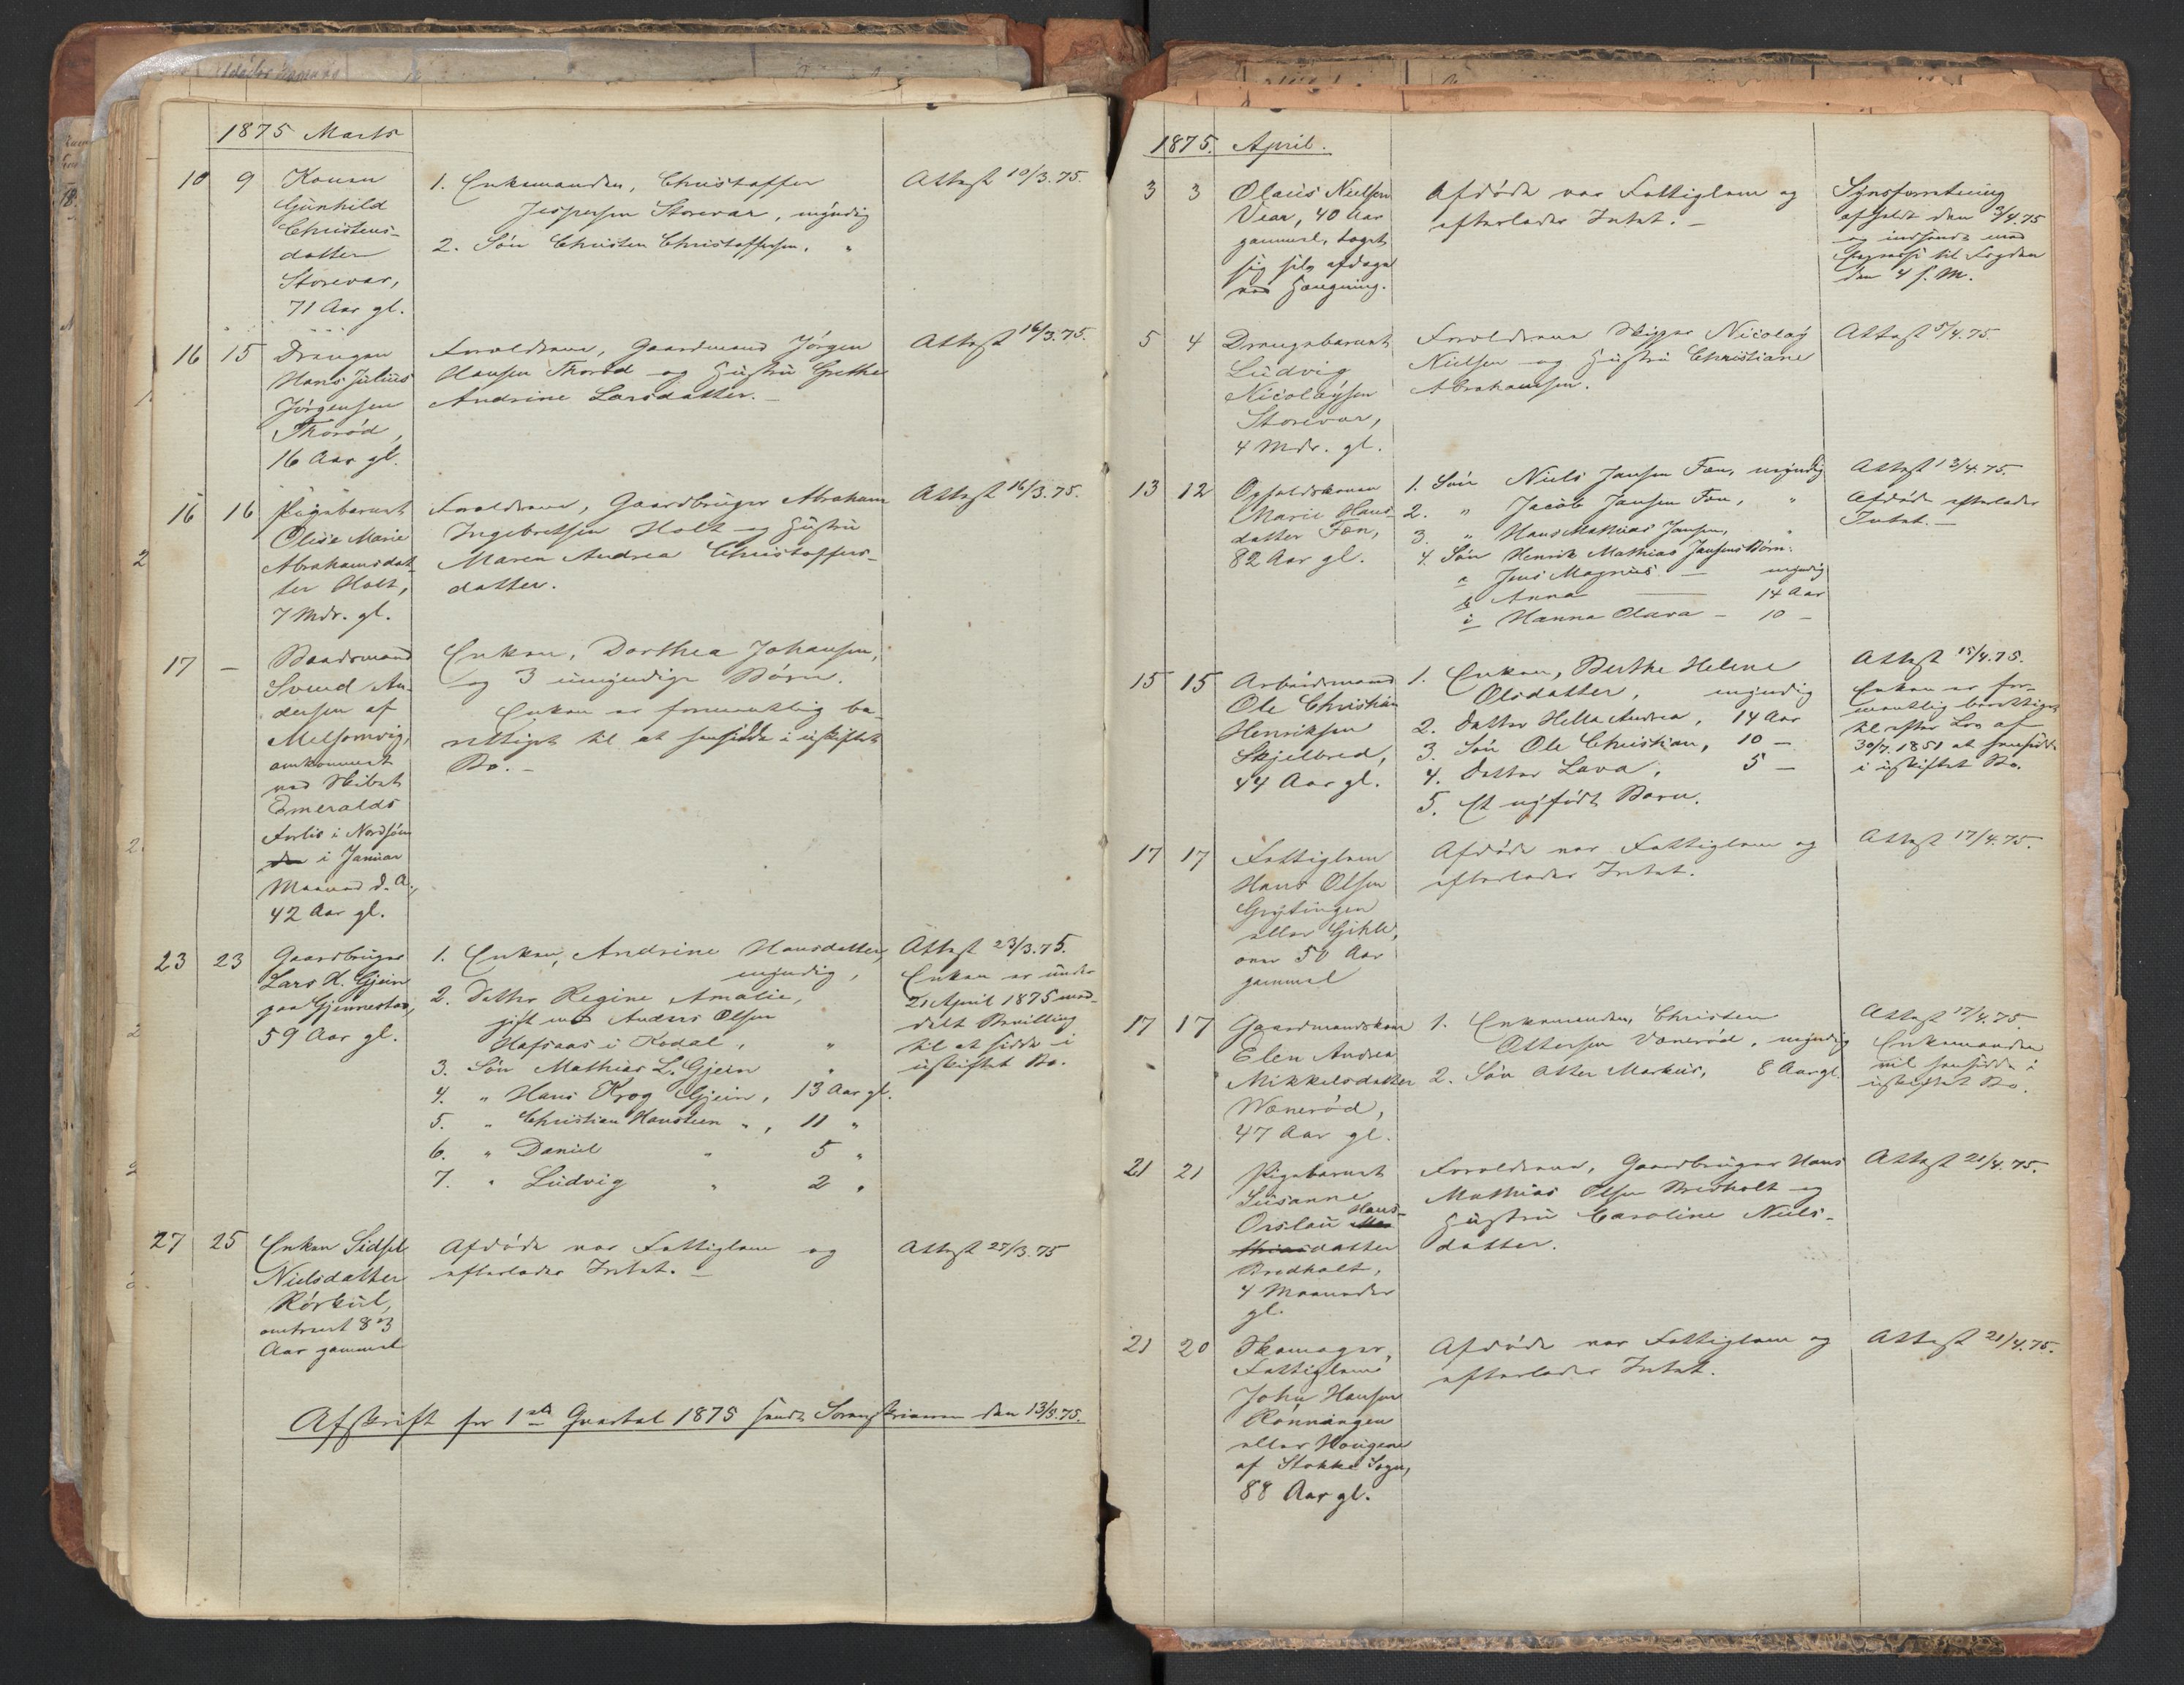 1875 Marts
10 9 Konen
Gunhild
Christens-
datter
Storevar,
71 Aar gl.
1. Enkemanden, Christoffer
Jespersen Storevar, myndig
2. Søn Christen Christoffersen, "
Attest 10/3.75.
16 15 Drengen
Hans Julius
Jørgensen
Thorød,
16 Aar gl.
Forældrene, Gaardmand Jørgen
Hansen Thorød og Hustru Grethe
Andrine Larsdatter. –
Attest 16/3.75.
16 16 Pigebarnet
Olise Marie
Abrahamsdat-
ter Holt,
7 Mdr. gl.
Forældrene, Gaardbruger Abraham
Ingebretsen Holt og Hustru
Maren Andrea Christoffers-
datter.
Attest 16/3.75.
17 – Baadsmand
Svend An-
dersen af
Melsomvig,
omkommet
ved Skibet
Esmeralds
Forlis i Nordsøen
i Januar
Maaned d. A.,
42 Aar gl.
Enken, Dorthea Johansen,
og 3 umyndige Børn.
Enken er formentlig be-
rettiget til at hensidde i uskiftet
Bo. –
23 23 Gaardbruger
Lars H. Gjein
paa Gjennestad,
59 Aar gl.
1. Enken, Andrine Hansdatter,
myndig,
2. Datter Regine Amalie,
gift med Anders Olsen
Hafsaas i Kodal, "
3. Søn Mathias L. Gjein "
4. " Hans Krog Gjein, 13 Aar gl.
5. " Christian Hansteen ", 11 "
6. " Daniel " 5 "
7. " Ludvig " 2 "
Attest 23/3.75.
Enken er under
21 April 1875 med-
delt Bevilling
til at sidde i
uskiftet Bo.
27 25 Enken Sidsel
Nielsdatter
Rørkul,
omtrent 83
Aar gammel
Afdøde var Fattiglem og
efterlader Intet. –
Attest 27/3.75
Afskrift for 1ste Qvartal 1875 sendt Sorenskriveren den 13/5.75.
1875. April.
3 3 Olaus Nielsen
Vear, 40 Aar
gammel, taget
sig selv afdage
ved Hængning.
Afdøde var Fattiglem og
efterlader Intet. –
Synsforretning
afholdt den 3/4.75
og indsendt med
til Fogden
den 4 s. M.
5 4 Drengebarnet
Ludvig
Nicolaysen
Storevar,
4 Mdr. gl.
Forældrene Skipper Nicolay
Nielsen og Hustru Christiane
Abrahamsen.
Attest 5/4.75.
13 12 Opholdskonen
Marie Hans-
datter Fæn,
82 Aar gl.
1. Søn Niels Jansen Fæn, myndig
2. " Jacob Jansen Fæn, "
3. " Hans Mathias Jansen, "
4. Søn Henrik Mathias Jansens Børn:
a Jens Magnus – myndig
b Anna – 14 Aar
c Hanna Olava – 10 –
Attest 13/4.75.
Afdøde efterlader
Intet. –
15 15 Arbeidsmand
Ole Christian
Henriksen
Skjelbred,
44 Aar gl.
1. Enken, Berthe Helene
Olsdatter, myndig
2. Datter Hella Andrea, 14 Aar
3. Søn Ole Christian, 10 –
4. Datter Lava, 5 –
5. Et nyfødt Barn.
Attest 15/4.75.
Enken er for-
mentlig berettiget
til efter Lov af
30/7.1851 at hensidde
i uskiftet Bo.
17 17 Fattiglem
Hans Olsen
Grytingen
eller Gihle,
over 50 Aar
gammel
Afdøde var Fattiglem og
efterlader Intet.
Attest 17/4.75.
17 17 Gaardmandskone
Elen Andrea
Mikkelsdatter
Wænerød,
47 Aar gl.
1. Enkemanden, Christen
Ottersen Vænerød, myndig
2. Søn Otter Markus, 8 Aar gl.
Attest 17/4.75.
Enkemanden
vil hensidde i
uskiftet Bo.
21 21 Pigebarnet
Susanne
Orslau Hans-
datter
Bredholt,
4 Maaneder
gl.
Forældrene, Gaardbruger Hans
Mathias Olsen Bredholt og
Hustru Caroline Niels-
datter.
Attest 21/4.75.
21 20 Skomager,
Fattiglem
John Hansen
Rønningen
eller Haugene
af Stokke Sogn,
88 Aar gl.
Afdøde var Fattiglem og
efterlader Intet.
Attest 21/4.75.